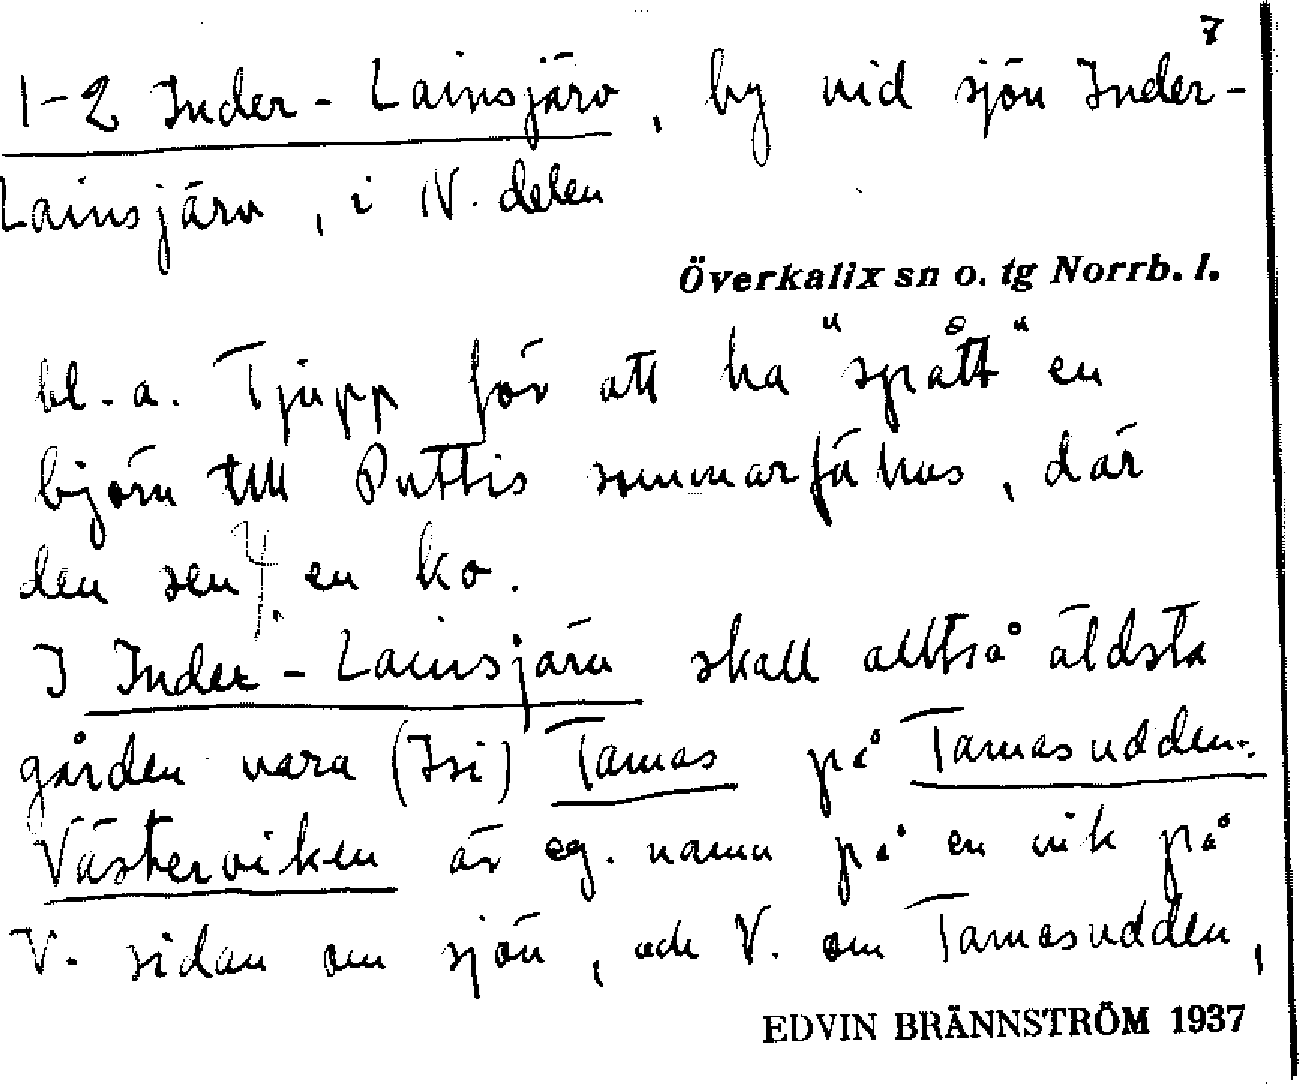 7
1-2 Inder-Lainsjärv, by vid sjön Inder-
Lainsjärv, i N. delen
Överkalix sn o. tg Norrb. l.
bl.a. Tjupp för att ha "spått" en
björn till Puttis sommarfähus, där
den sen en ko.
I Inder-Lainsjärv skall alltså äldsta
gården vara (Isi) Tamas på Tamasudden.
Västerviken är eg. namn på en vik på
V. sidan om sjön, och V. om Tamasudden,
EDVIN BRÄNNSTRÖM 1937